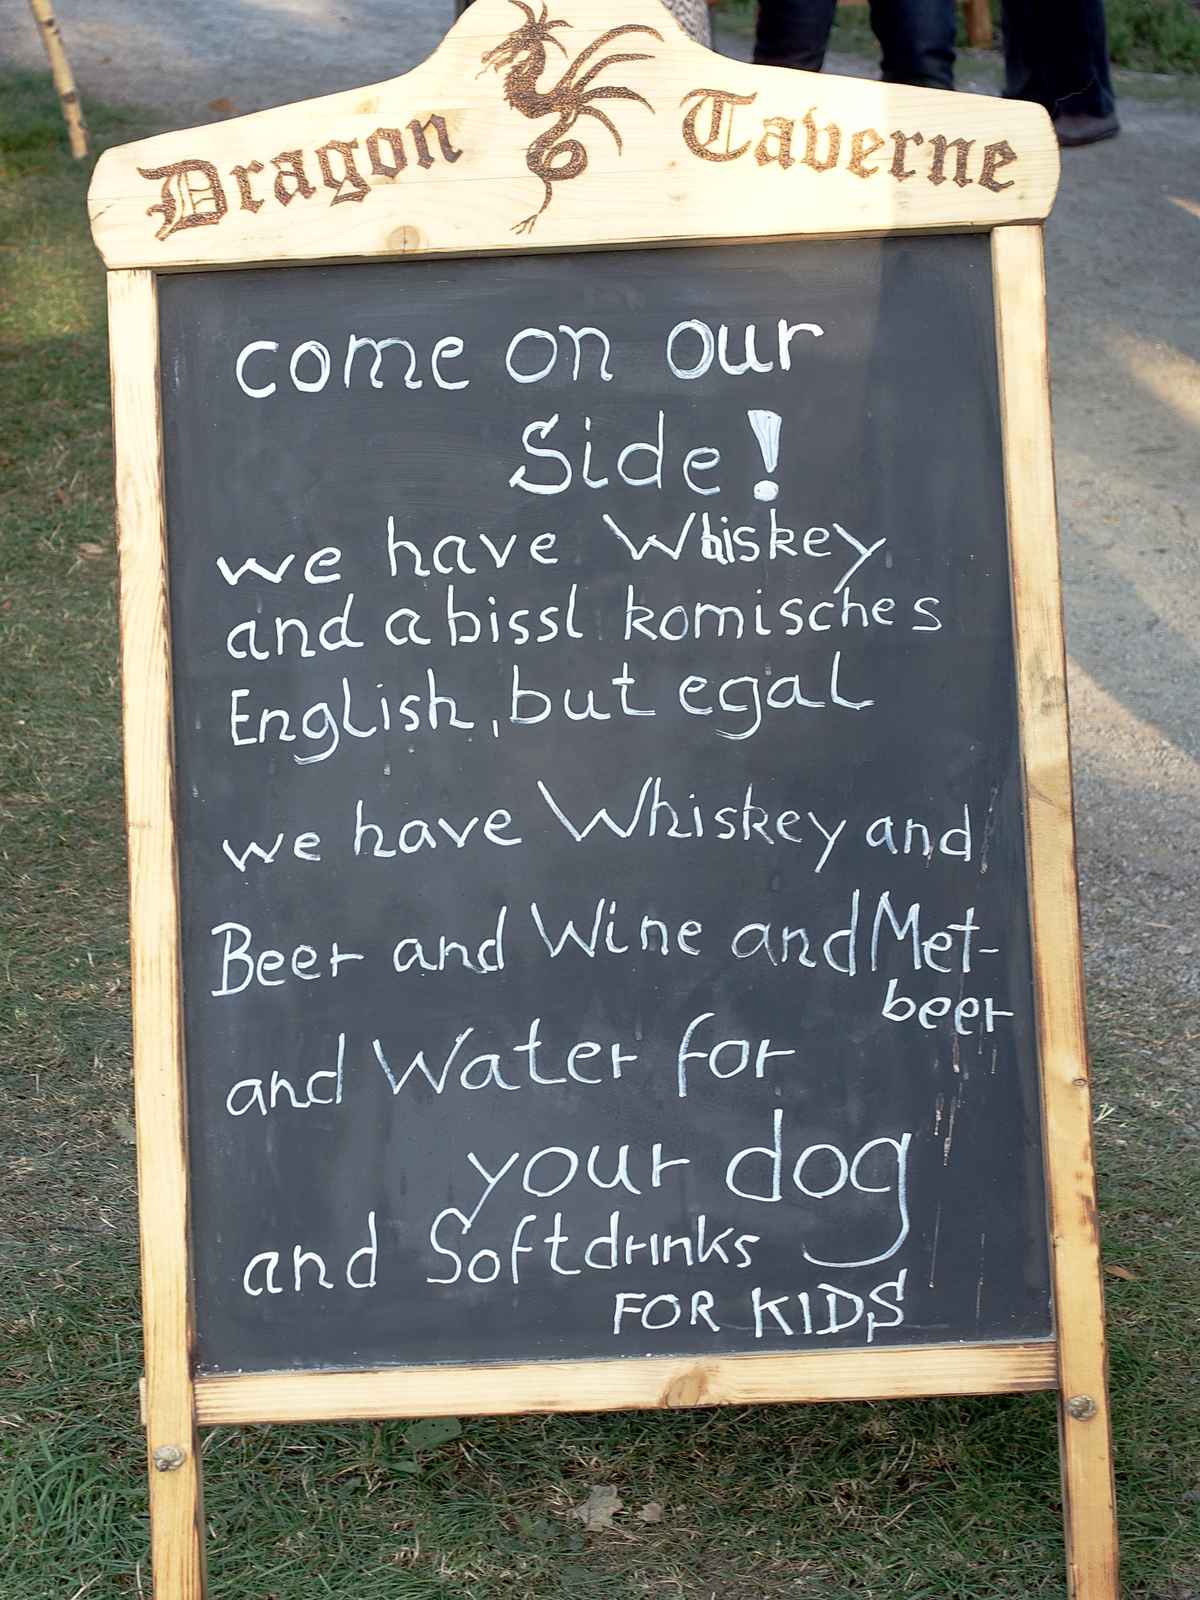 Dragon Taverne
come on our
Side!
we have Whiskey
and a bissl komisches
English, but egal
we have Whiskey and
Beer and Wine and Met-
beer
and Water for
your dog
and Softdrinks
FOR KIDS